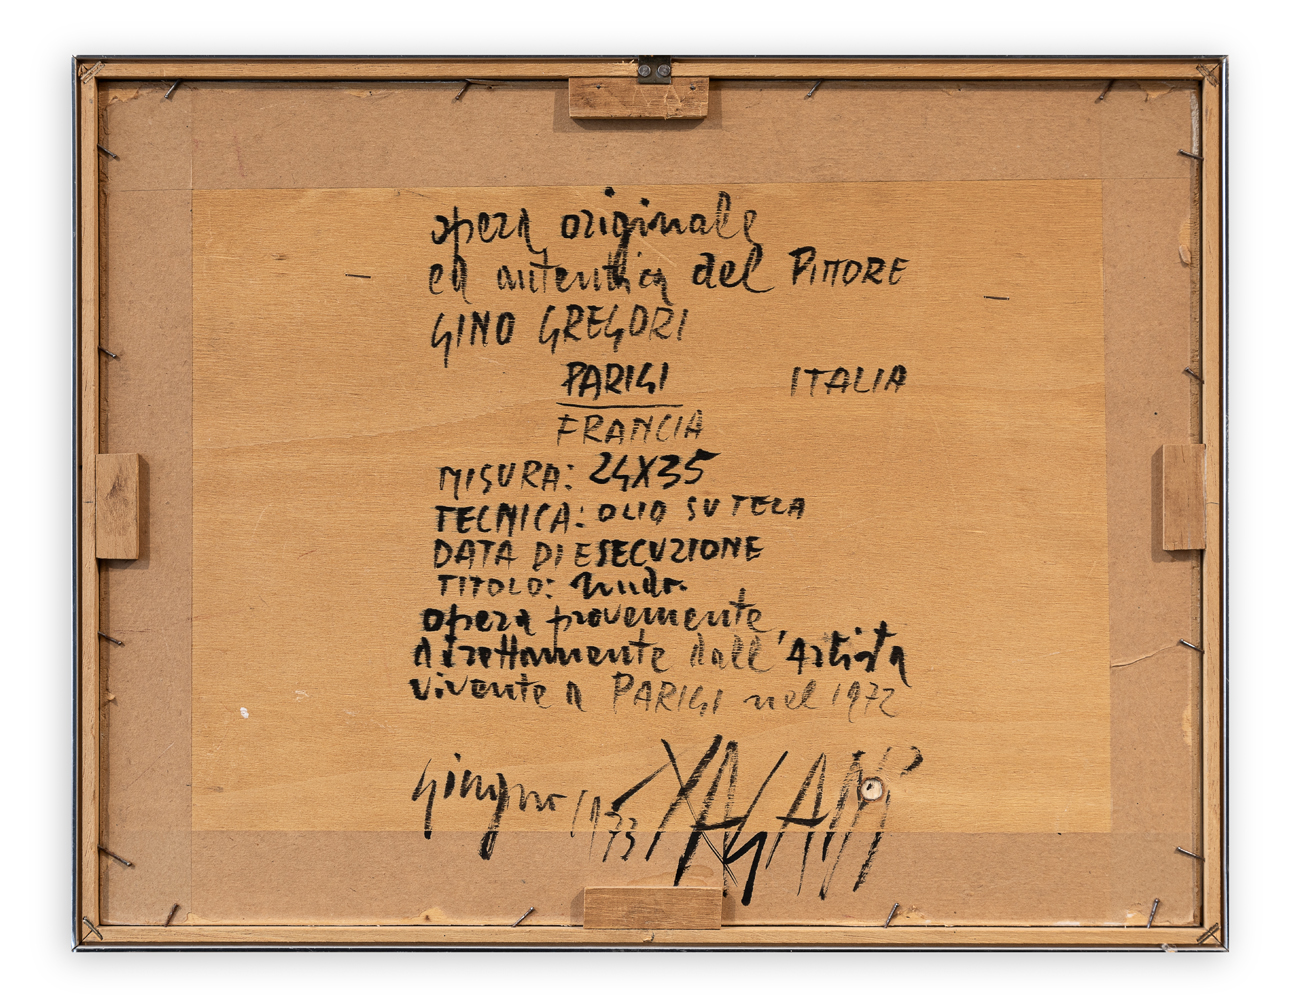 opera originale
ed autentica del PITTORE
GINO GREGORI
PARIGI ITALIA
FRANCIA
MISURA: 24X35
TECNICA: OLIO SU TELA
DATA DI ESECUZIONE
TITOLO: nudo.
opera provenente
direttamente dall'Artista
vivente a PARIGI nel 1972
giugno 1973